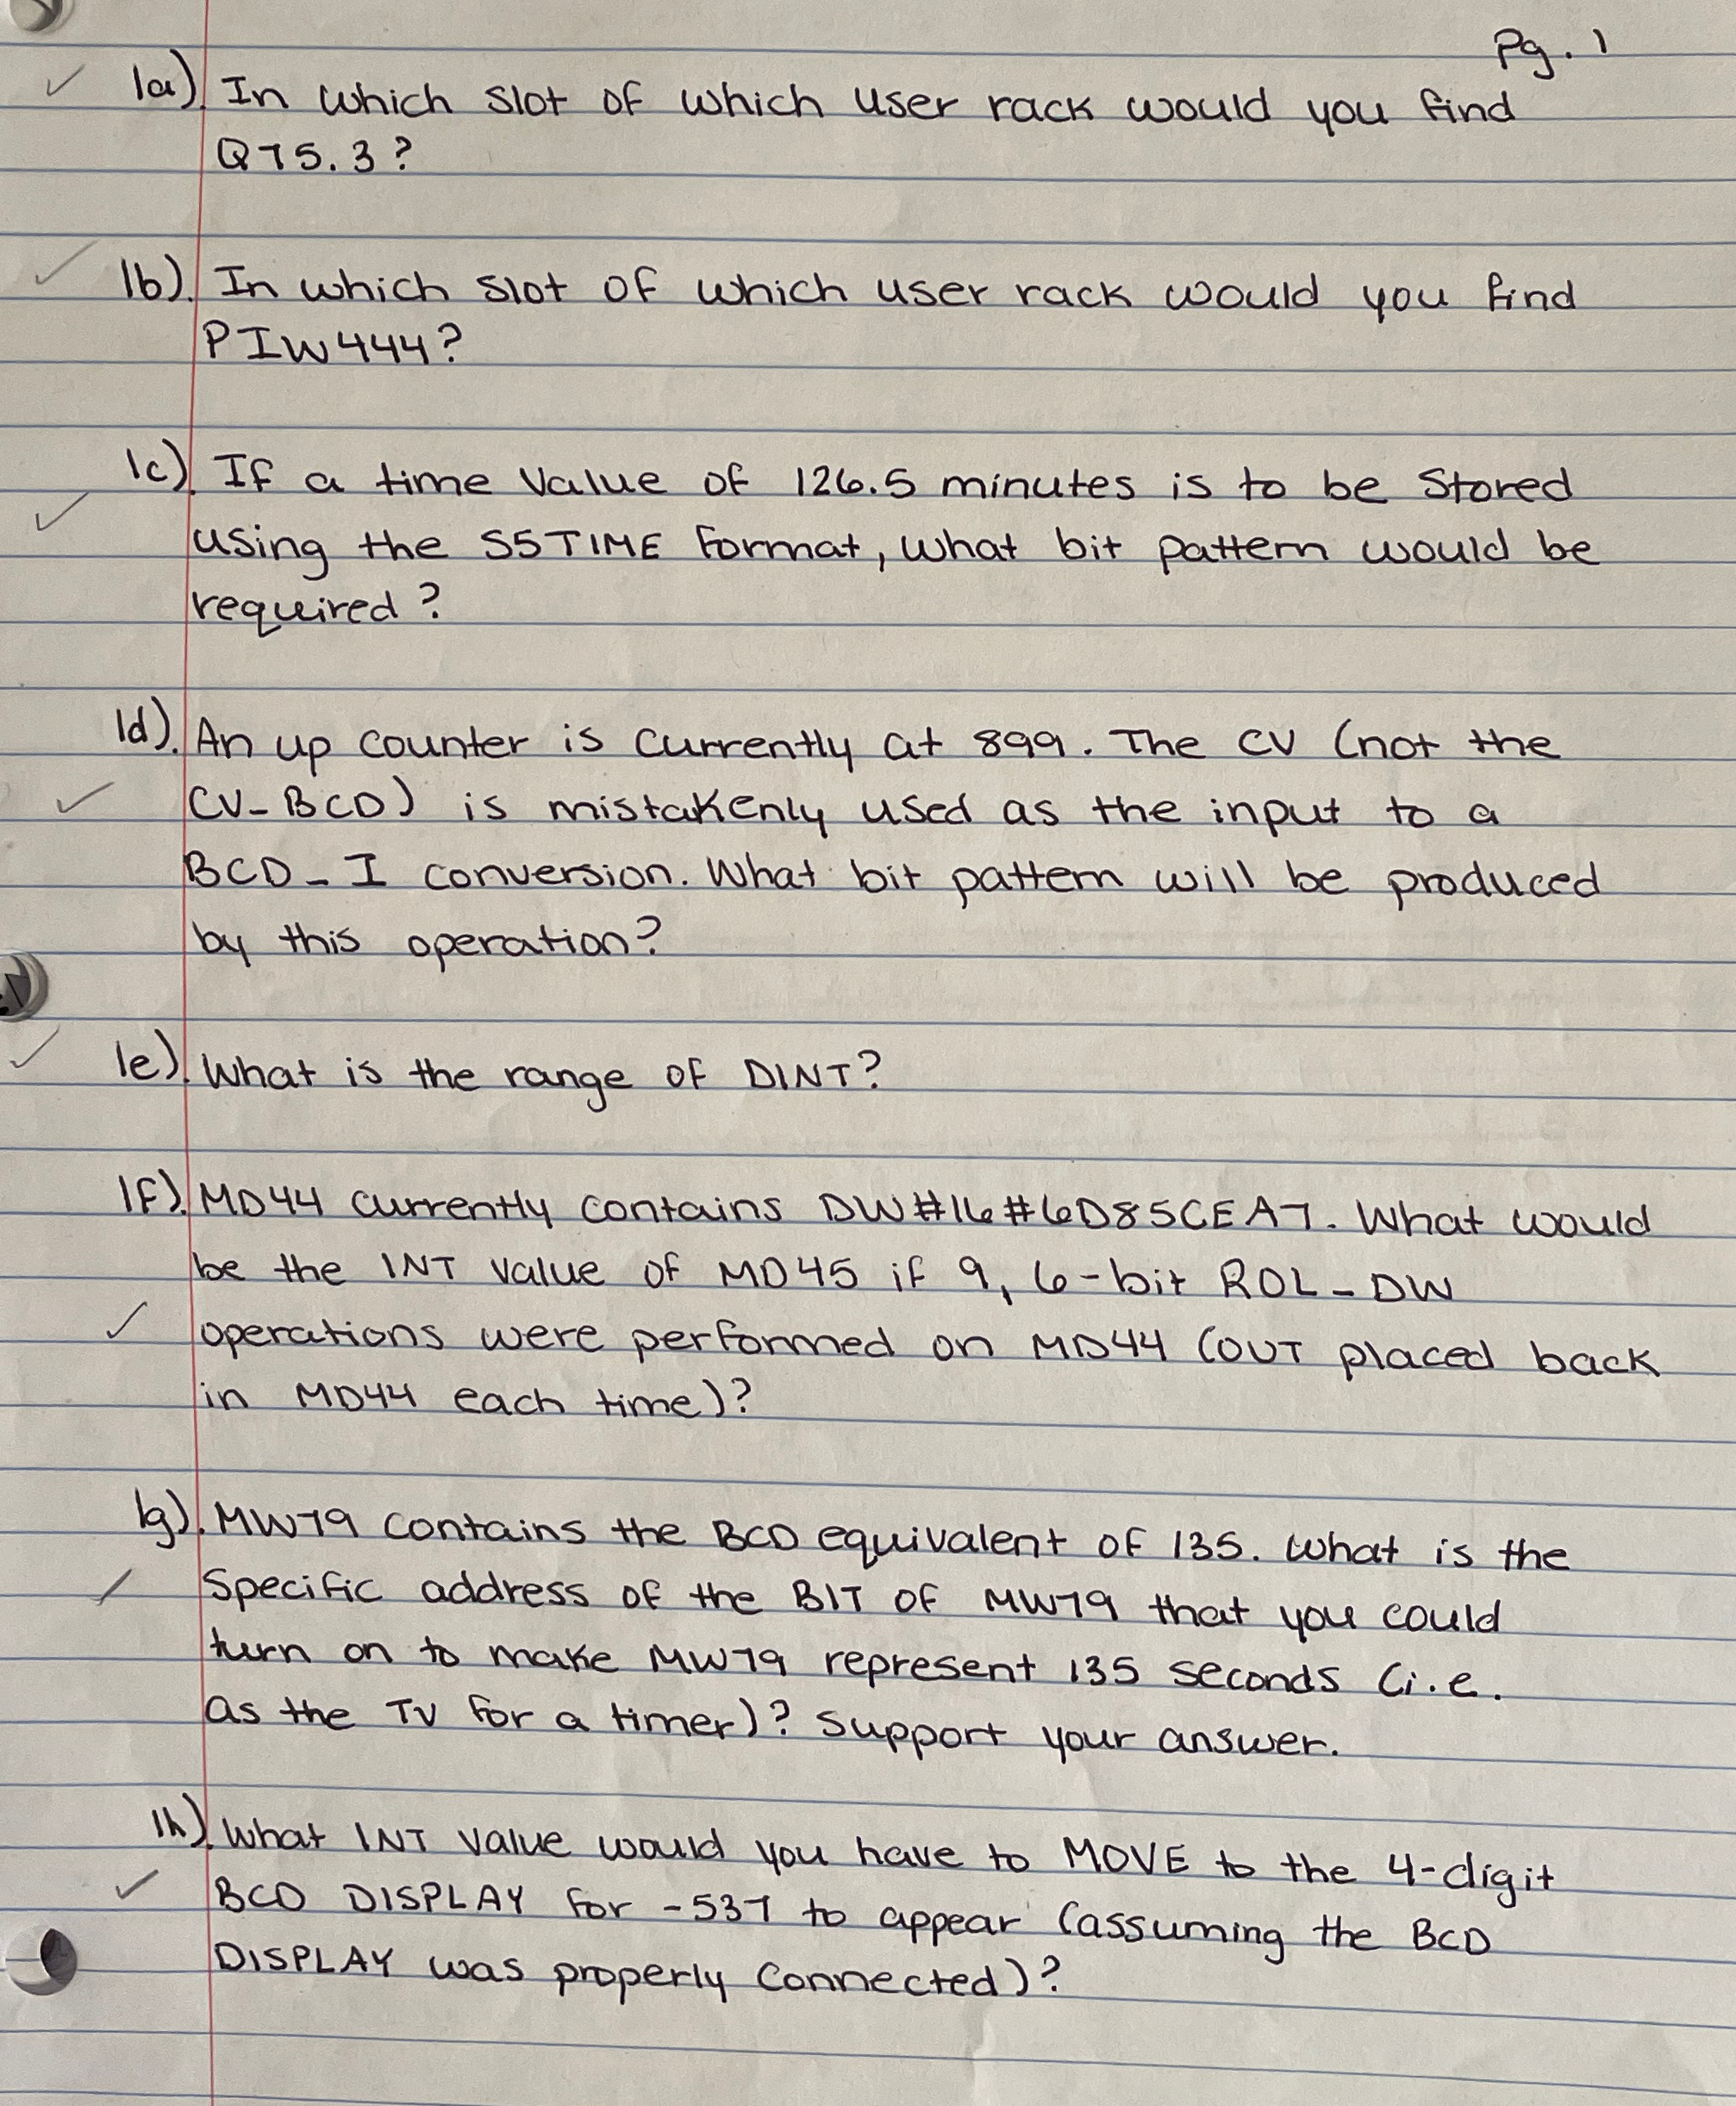 Pg. 1
1a). In which slot of which user rack would you find
Q75.3?
1b). In which slot of which user rack would you find
PIW444?
1c). If a time value of 126.5 minutes is to be stored
using the S5TIME format, what bit pattern would be
required?
1d). An up counter is currently at 899. The CV (not the
CV_BCD) is mistakenly used as the input to a
BCD_I conversion. What bit pattern will be produced
by this operation?
1e). What is the range of DINT?
1f). MD44 currently contains DW#16#6D85CEA7. What would
be the INT value of MD45 if 9, 6-bit ROL_DW
operations were performed on MD44 (OUT placed back
in MD44 each time)?
1g). MW79 contains the BCD equivalent of 135. What is the
specific address of the BIT of MW79 that you could
turn on to make MW79 represent 135 seconds (i.e.
as the TV for a timer)? Support your answer.
1h) What INT value would you have to MOVE to the 4-digit
BCD DISPLAY for -537 to appear (assuming the BCD
DISPLAY was properly connected)?